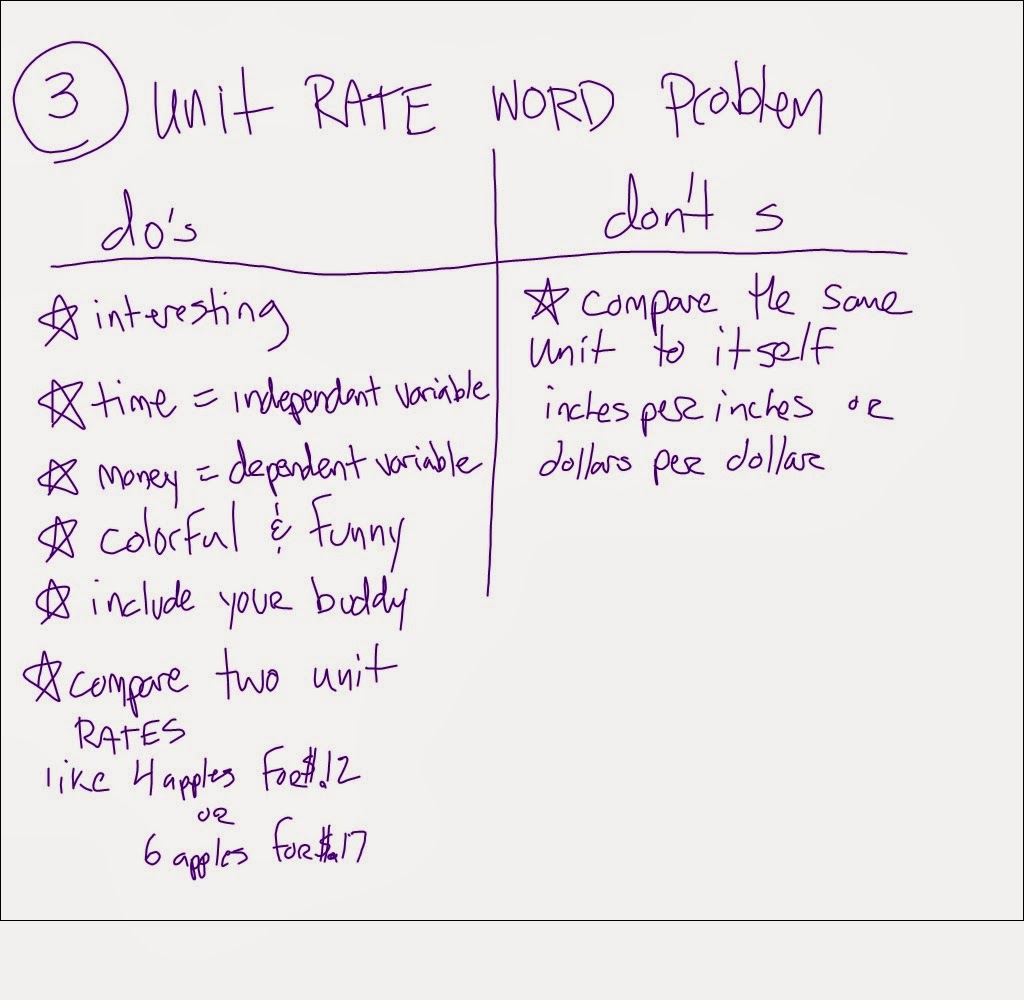 3 unit RATE WORD Problem
do's
☆ interesting
☆ time = independent variable
☆ money = dependent variable
☆ colorful & funny
☆ include your buddy
☆ compare two unit
RATES
like 4 apples for $.12
or
6 apples for $.17
don't s
☆ compare the same
unit to itself
inches per inches or
dollars per dollar